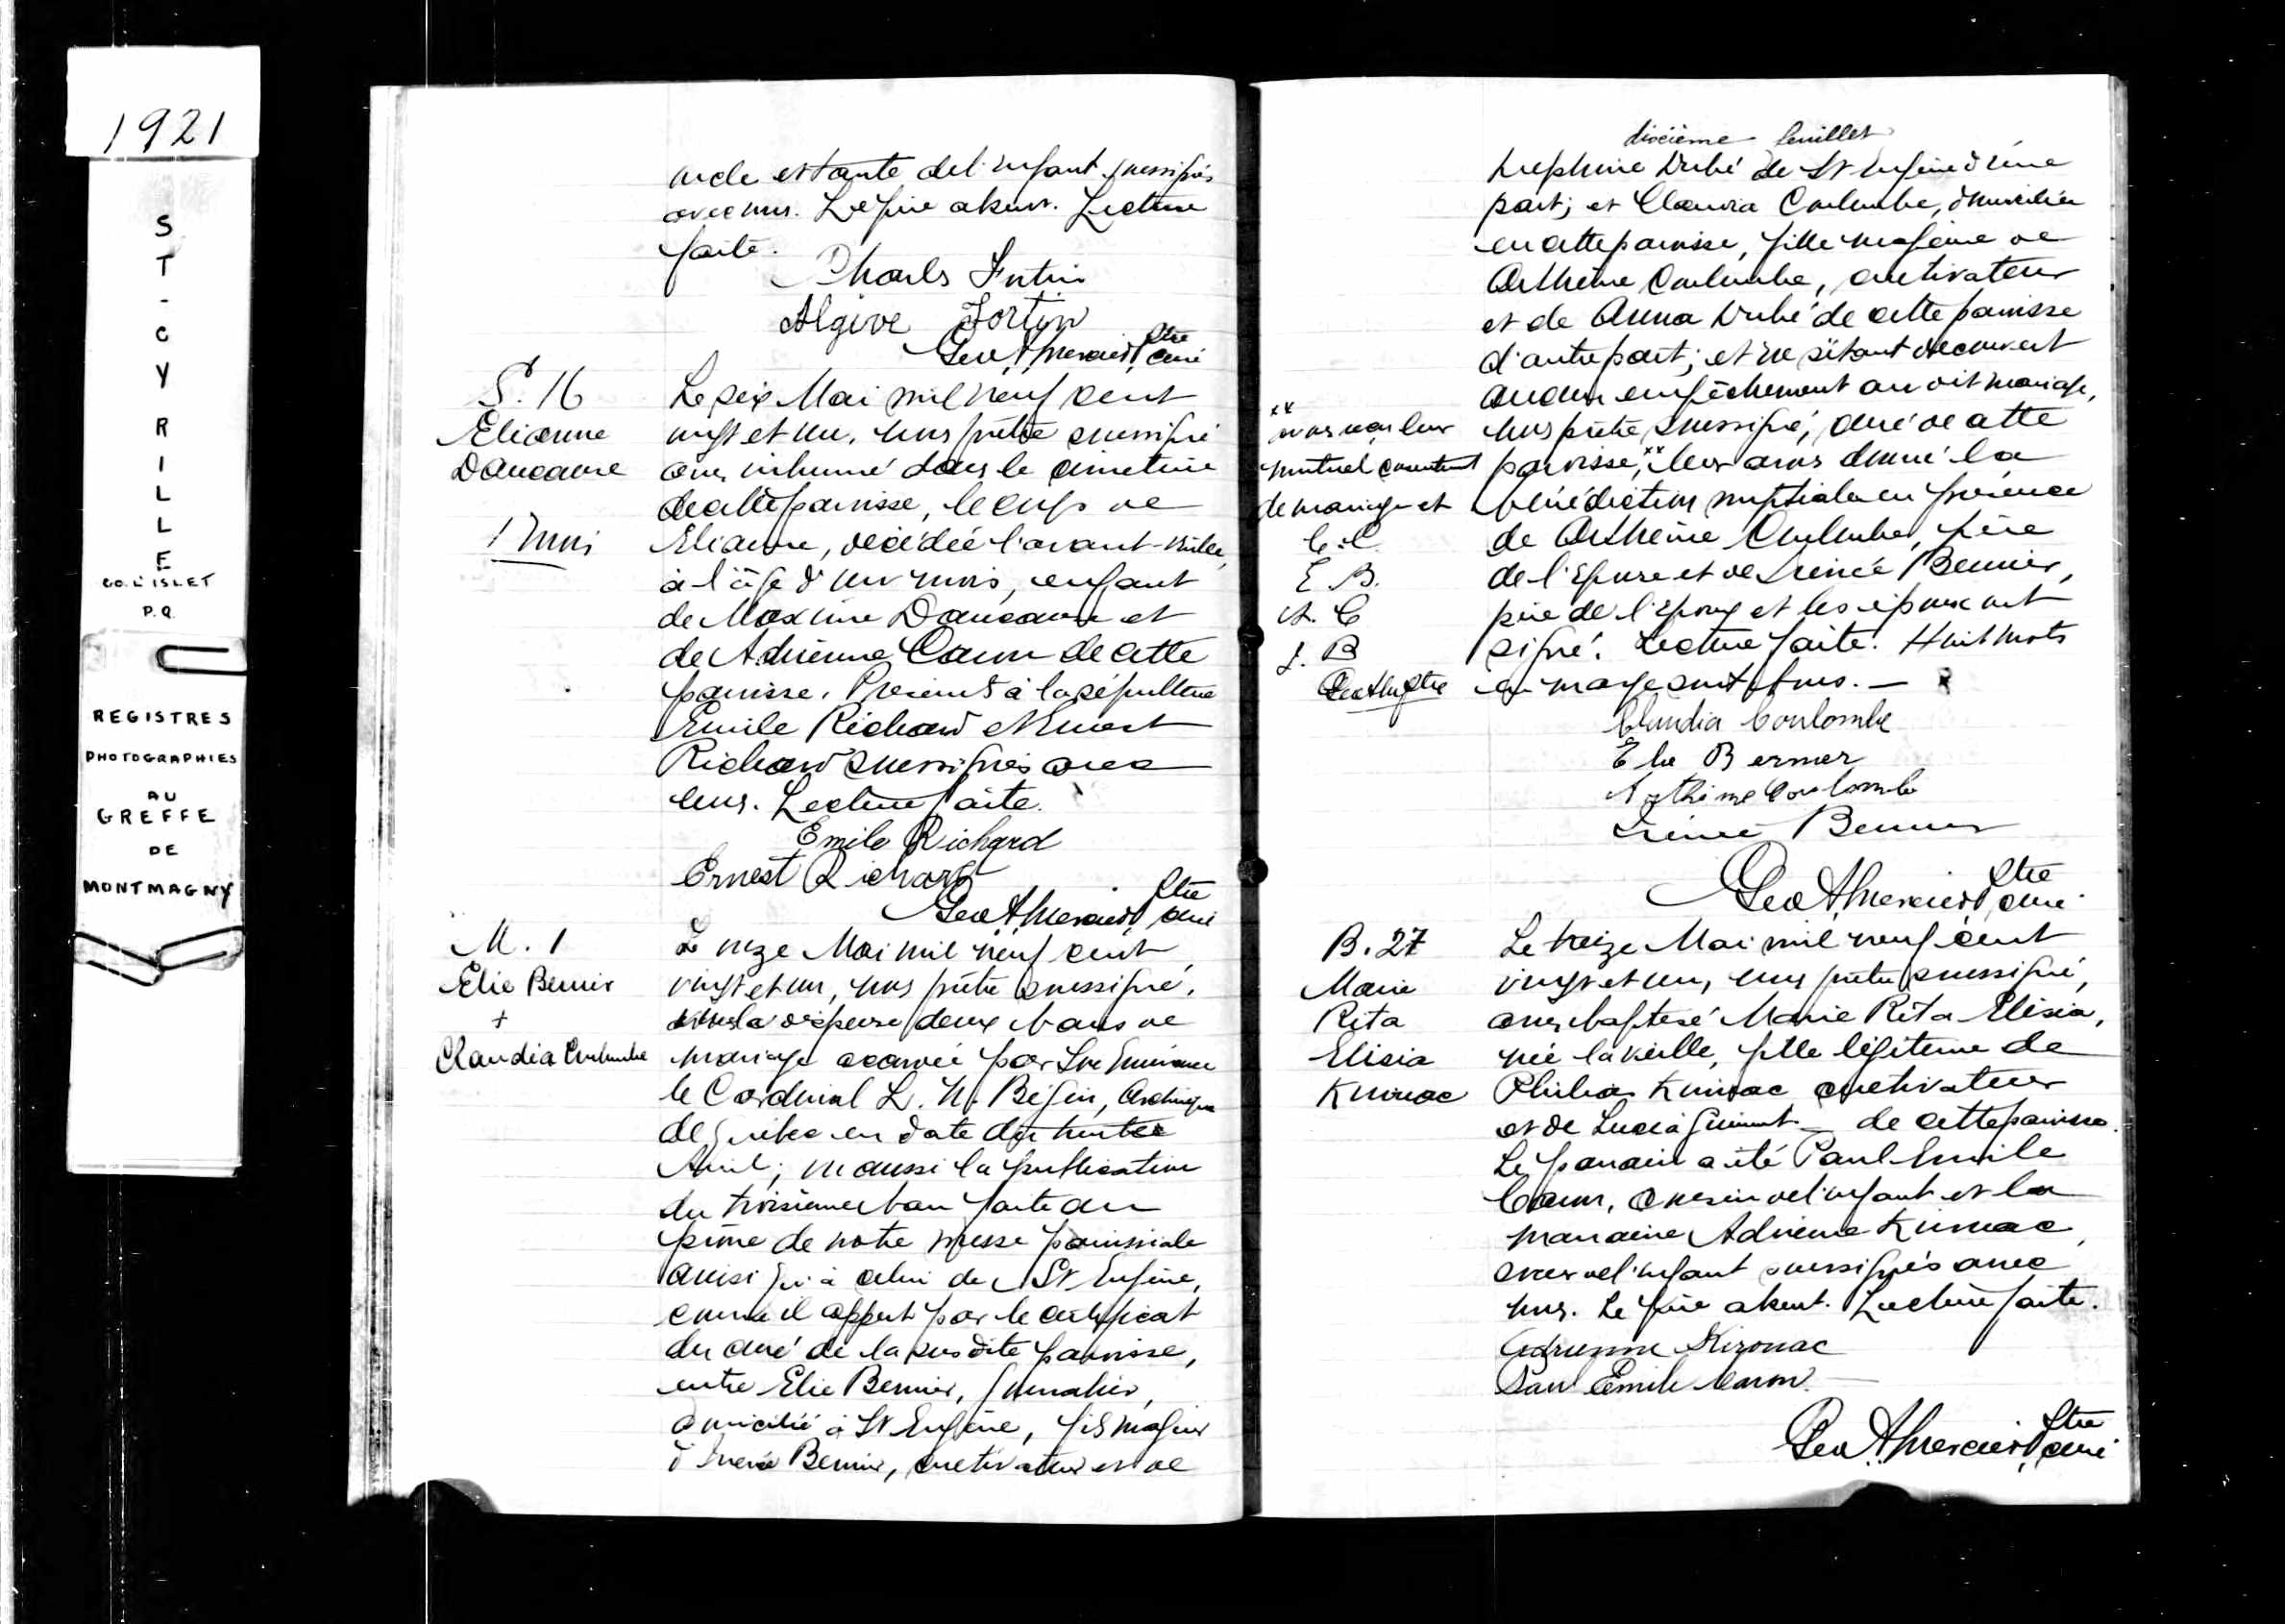 1921
ST-CYRILLE
CO. L'ISLET
P.Q.
REGISTRES
PHOTOGRAPHIES
AU
GREFFE
DE
MONTMAGNY
oncle et tante de l'enfant soussignés
avec nous. Le père absent. Lecture
faite.
Charles Fortin
Algive Fortin
Geo. A. Mercier, Ptre
curé
S. 16
Elianne
Dancause
1 mois
Le six Mai mil neuf cent
vingt et un, nous prêtre soussigné
avons inhumé dans le cimetière
de cette paroisse, le corps de
Elianne, décédée l'avant-veille,
à l'âge d'un mois, enfant
de Maxime Dancause et
de Adrienne Caron de cette
paroisse. Présents à la sépulture
Emile Richard et Ernest
Richard soussignés avec
nous. Lecture faite.
Emile Richard
Ernest Richard
Geo. A. Mercier, Ptre
curé
M. 1
Elie Bernier
+
Claudia Coulombe
Le onze Mai mil neuf cent
vingt et un, nous prêtre soussigné,
vu la dispense deux bans de
mariage accordée par Son Eminence
le Cardinal L. N. Bégin, Archevêque
de Québec en date du trente
Avril; vu aussi la publication
du troisième ban faite au
prône de notre messe paroissiale
ainsi qu'à celui de St Eugène,
comme il appert par le certificat
du curé de la susdite paroisse,
entre Elie Bernier, journalier,
domicilié à St Eugène, fils majeur
d'Irénée Bernier, cultivateur et de
dixième feuillet
Delphine Dubé de St Eugène d'une
part; et Claudia Coulombe, domiciliée
en cette paroisse, fille majeure de
Arthème Coulombe, cultivateur
et de Anna Dubé de cette paroisse
d'autre part; et ne s'étant découvert
aucun empêchement au dit mariage,
nous prêtre soussigné, curé de cette
paroisse,** leur avons donné la
bénédiction nuptiale en présence
de Arthème Coulombe, père
de l'épouse et de Irénée Bernier,
père de l'époux et les époux ont
signé. Lecture faite. Huit mots
en marge sont bons. —
** avons reçu leur
mutuel consentement
de mariage et
C. C.
E. B.
A. C
I. B
Geo A M Ptre
Claudia Coulombe
Elie Bernier
Arthime Coulombe
Irénée Bernier
Geo. A. Mercier, Ptre
curé
B. 27
Marie
Rita
Elisia
Kirouac
Le treize Mai mil neuf cent
vingt et un, nous prêtre soussigné,
avons baptisé Marie Rita Elisia,
née la veille, fille légitime de
Philias Kirouac cultivateur
et de Lucia Guimont — de cette paroisse.
Le parrain a été Paul Emile
Caron, cousin de l'enfant et la
marraine Adrienne Kirouac,
soeur de l'enfant soussignés avec
nous. Le père absent. Lecture faite.
Adrienne Kirouac
Paul Emile Caron
Geo. A. Mercier, Ptre
curé